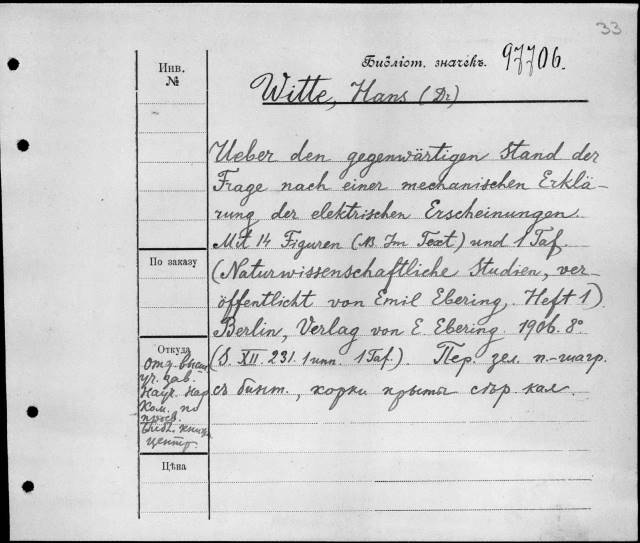 33
Инв. №
Библіот. значекъ. 97706.
Witte, Hans (Dr)
Ueber den gegenwärtigen Stand der
Frage nach einer mechanischen Erklä-
rung der elektrischen Erscheinungen.
Mit 14 Figuren (NB. Im Text) und 1 Taf.
По заказу
(Naturwissenschaftliche Studien, ver-
öffentlicht von Emil Ebering, Heft 1)
Berlin, Verlag von E. Ebering. 1906. 8°
Откуда
(S. XII. 231. 1 unn. 1 Taf.) Пер. зел. п.-шагр.
съ бинт., корки крыты сѣр кал.
Отд. высш
уч. зав.
Науч. Нар
Ком. по
просв.
Библ. книж
центр.
Цѣна